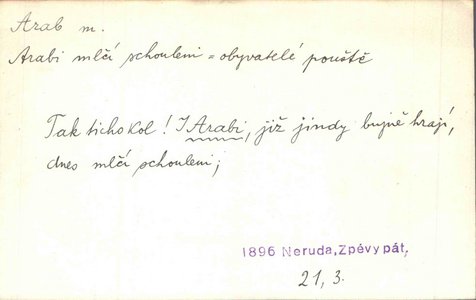 Arab m.
Arabi mlčí schouleni = obyvatelé pouště
Tak ticho kol! I Arabi, již jindy bujně hrají,
dnes mlčí schouleni;
1896 Neruda, Zpěvy pát.
21, 3.